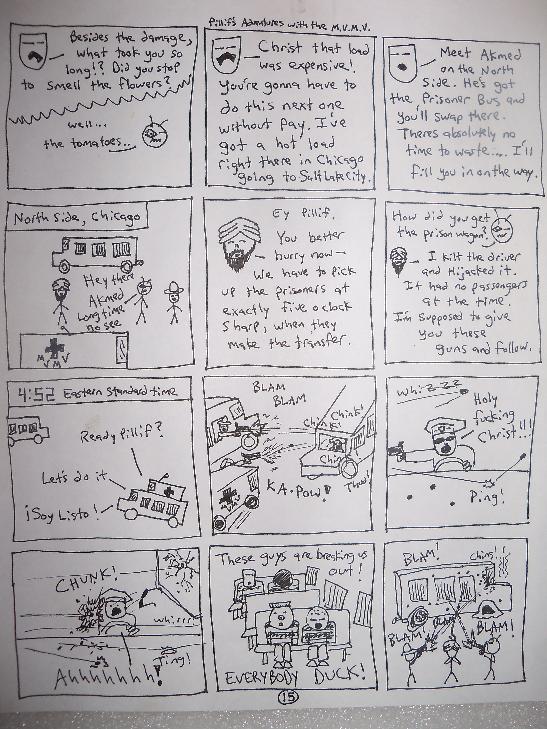 Pillif's Adventures with the M.V.M.V.
Besides the damage,
what took you so
long!? Did you stop
to smell the flowers?
well...
the tomatoes...
Christ that load
was expensive!
You're gonna have to
do this next one
without pay. I've
got a hot load
right there in Chicago
going to Salt Lake City.
Meet Akmed
on the North
Side. He's got
the Prisoner Bus and
you'll swap there.
Theres absolutely no
time to waste..... I'll
fill you in on the way.
North Side, Chicago
Hey there
Akmed
Long time
no see
MVMV
Ey Pillif.
You better
hurry now—
We have to pick
up the prisoners at
exactly five o clock
Sharp, when they
make the transfer.
How did you get
the prison wagon?
I kilt the driver
and Hijacked it.
It had no passengers
at the time.
I'm supposed to give
you these
guns and follow.
4:52 Eastern Standard time
Ready Pillif?
Let's do it
¡Soy Listo!
BLAM
BLAM
Chink!
Chink!
Chi
KA-Pow!
Thew!
Whizzzz
Holy
fucking
Christ...!!
Ping!
CHUNK!
Whirrr
Ting!
Ahhhhhhh!
These guys are breaking us
out!
EVERYBODY DUCK!
BLAM!
Ching
BLAM!
BLAM!
15